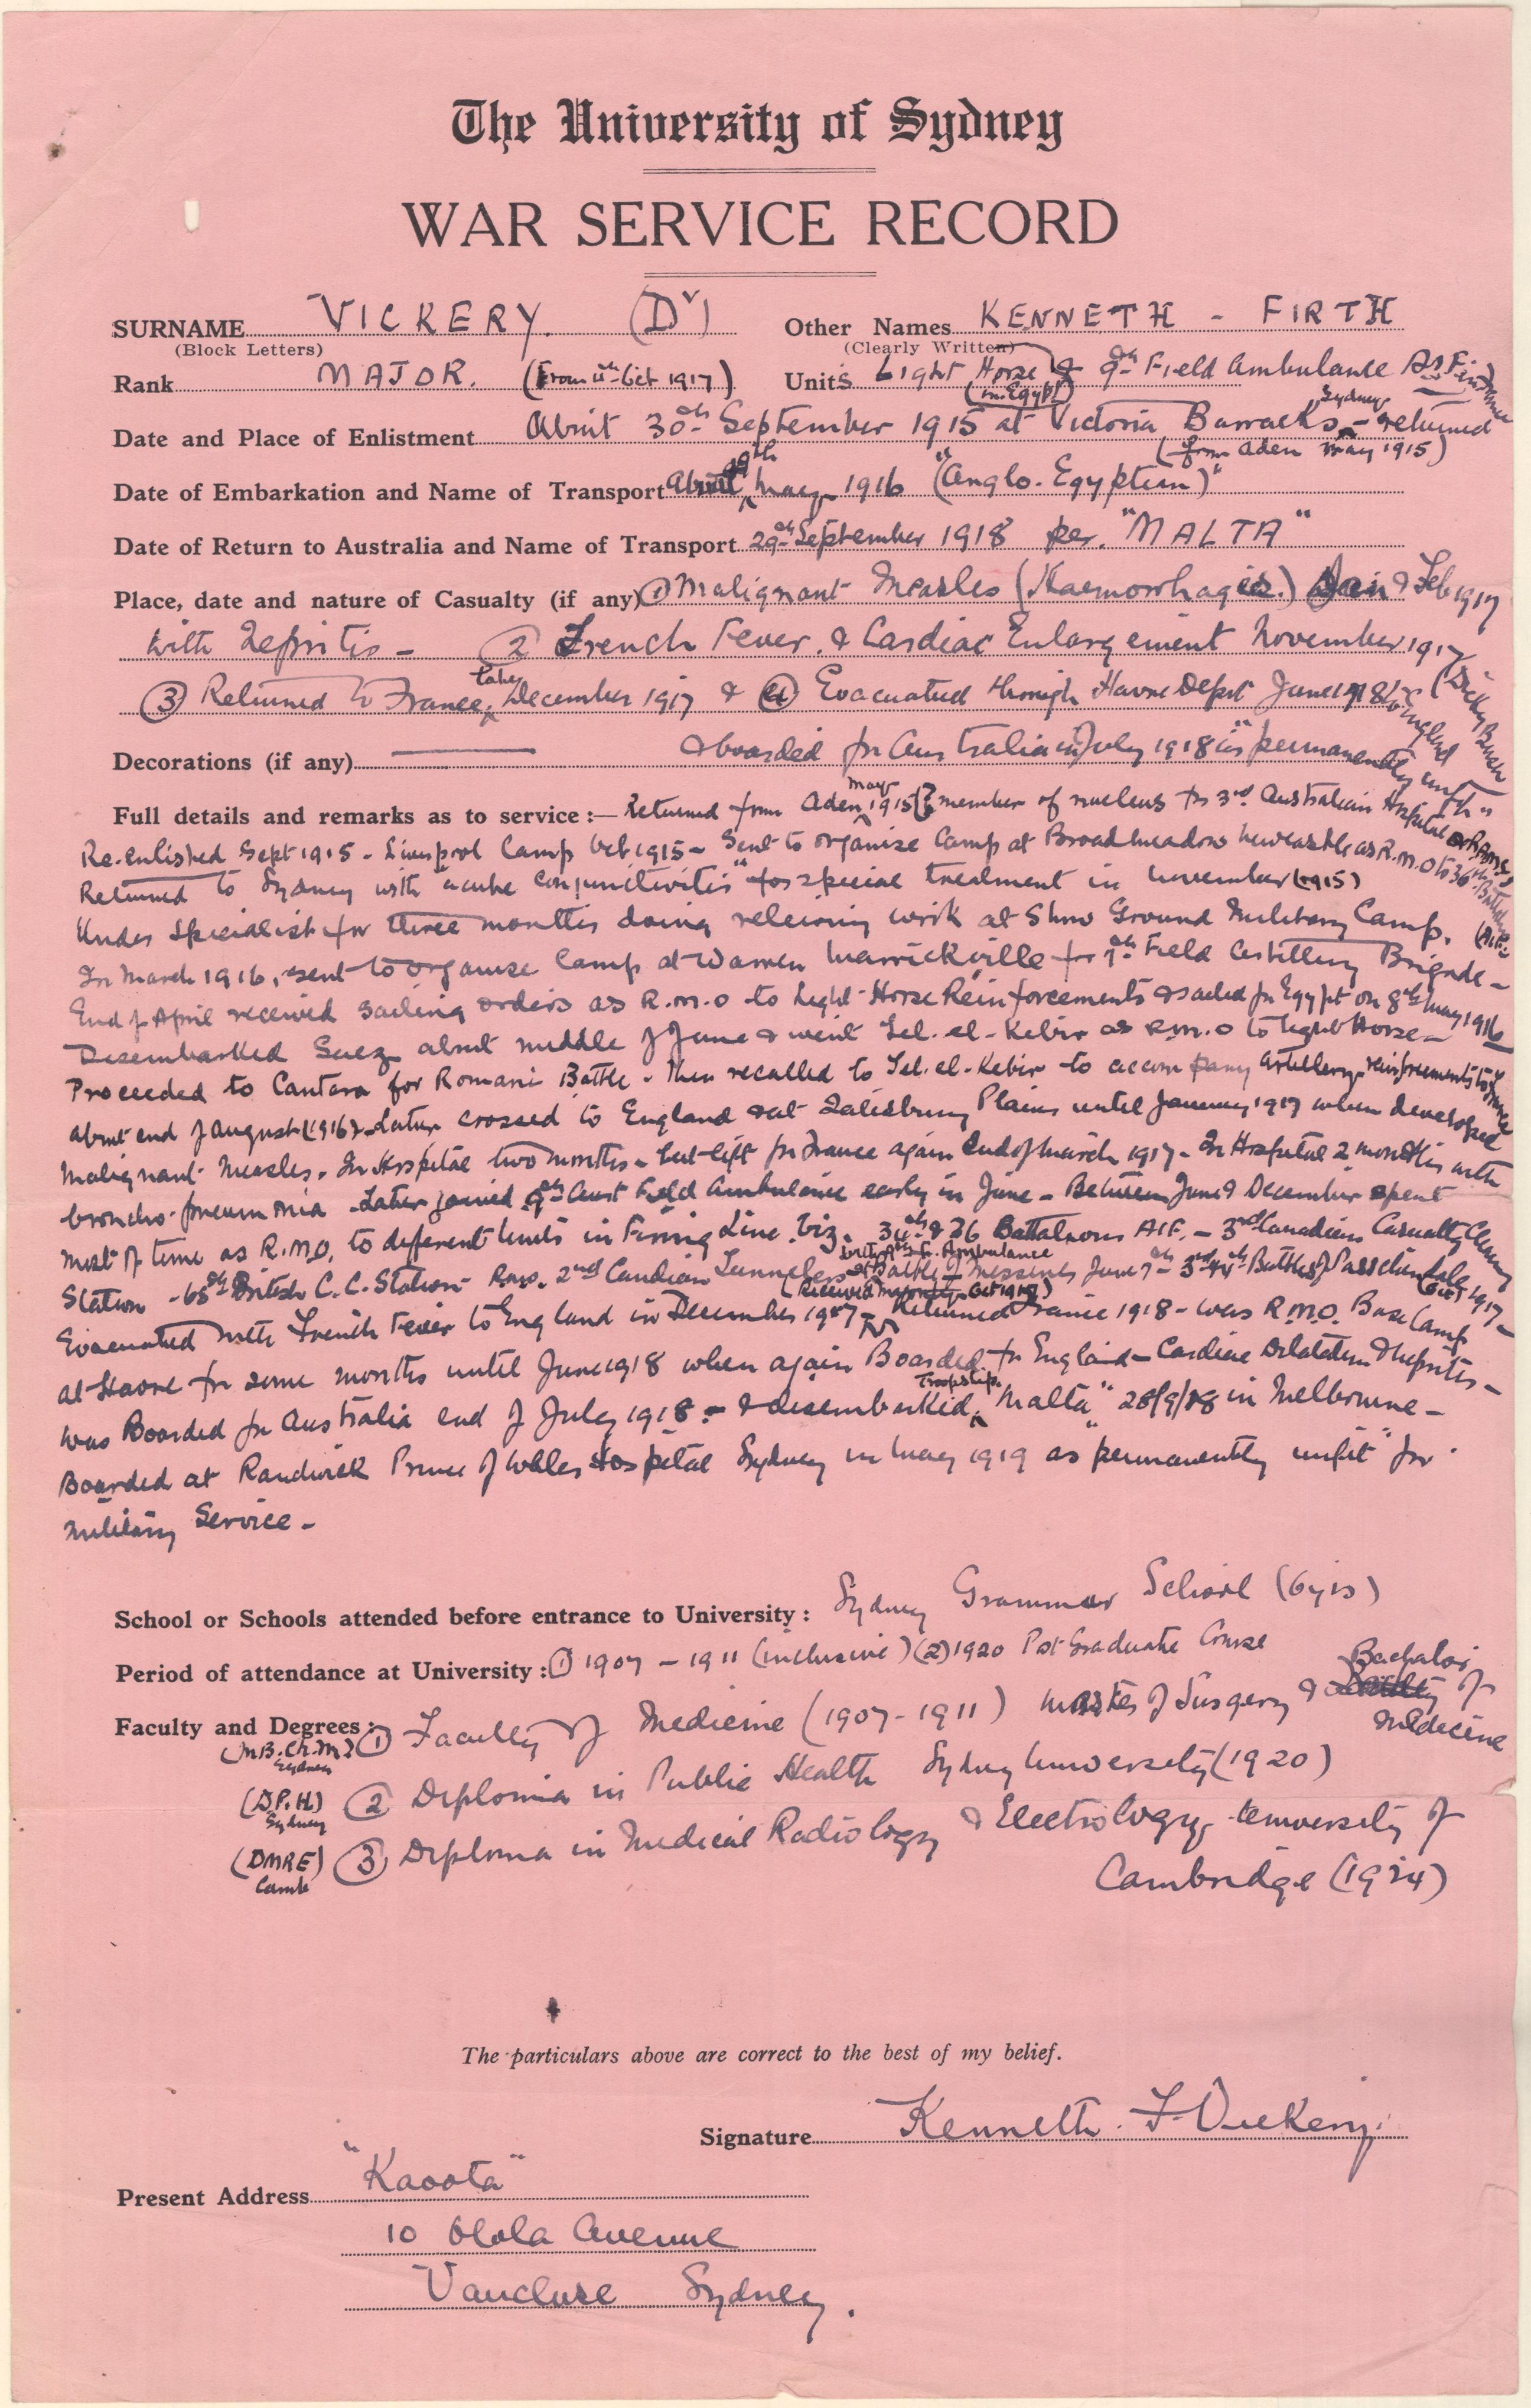 The University of Sydney
WAR SERVICE RECORD
SURNAME VICKERY. (Dr) Other Names KENNETH - FIRTH
(Block Letters) (Clearly Written)
Rank MAJOR. (From 11th Oct 1917) Units Light Horse & 9th Field Ambulance
(in Egypt)
Date and Place of Enlistment About 30th September 1915 at Victoria Barracks Sydney - returned
(from Aden May 1915)
Date of Embarkation and Name of Transport About May 1916 "(Anglo-Egyptian)"
Date of Return to Australia and Name of Transport 29th September 1918 per. "MALTA"
Place, date and nature of Casualty (if any) ① Malignant Measles (Haemorrhagic.) Jan & Feb 1917
with Nefritis - 2 Trench Fever. & Cardiac Enlargement November 1917
③ Returned to France, late December 1917 & ④ Evacuated through Havre Depot June 1918 to England
Decorations (if any) — & boarded for Australia in July 1918 as "permanently unfit"
Full details and remarks as to service :— Returned from Aden May 1915 (member of nucleus for 3rd Australian Hospital
Re-enlisted Sept 1915 - Liverpool Camp Oct 1915 - Sent to organize Camp at Broadmeadow Newcastle as R.M.O to 36th Battalion
Returned to Sydney with "acute conjunctivitis" for special treatment in November (1915)
Under Specialist for three months doing relieving work at Show Ground Military Camp.
In March 1916, sent to organise Camp at Warren Marrickville for 7th Field Artillery Brigade -
End of April received sailing orders as R.M.O to Light Horse Reinforcements & sailed for Egypt on 8th May 1916
Disembarked Suez about middle of June & went Tel-el-Kebir as R.M.O to Light Horse -
Proceeded to Cantara for Romani Battle - then recalled to Tel-el-Kebir to accompany artillery reinforcements to France
about end of August (1916). Later crossed to England & at Salisbury Plains until January 1917 when developed
Malignant Measles. In Hospital two months - but left for France again End of March 1917 - In Hospital 2 months with
broncho-pneumonia - Later joined 9th Aust Field Ambulance early in June - Between June & December spent
most of time as R.M.O. to different Units in Firing Line. viz. 34th & 36 Battalions AIF. - 3rd Canadian Casualty Clearing
Station - British C.C. Station R.M.O. 2nd Candian Tunnelers - Battle of Messines June 7th - 3rd & 4th Battles of Passchendale Oct 1917 -
with 9th F. Ambulance
(Received Majority Oct 1917)
Evacuated with Trench Fever to England in December 1917 - Returned France 1918 - was R.M.O. Base Camp
at Havre for some months until June 1918 when again Boarded for England - Cardiac Dilatation & Nefritis -
was Boarded for Australia end of July 1918 - & disembarked Troopship "Malta" 28/9/18 in Melbourne -
Boarded at Randwick Prince of Wales Hospital Sydney in May 1919 as "permanently unfit" for
Military Service -
School or Schools attended before entrance to University : Sydney Grammar School (6 yrs)
Period of attendance at University : ① 1907 - 1911 (inclusive) (2) 1920 Post Graduate Course
Faculty and Degrees : ① Faculty of Medicine (1907-1911) Master of Surgery & Bachelor of Medicine
(M.B. Ch.M) Sydney
(D.P.H.) Sydney ② Diploma in Public Health Sydney University (1920)
(DMRE) Camb ③ Diploma in Medical Radiology & Electrology, University of
Cambridge (1924)
The particulars above are correct to the best of my belief.
Signature Kenneth. F. Vickery.
Present Address "Kaoota"
10 Olola Avenue
Vaucluse Sydney.